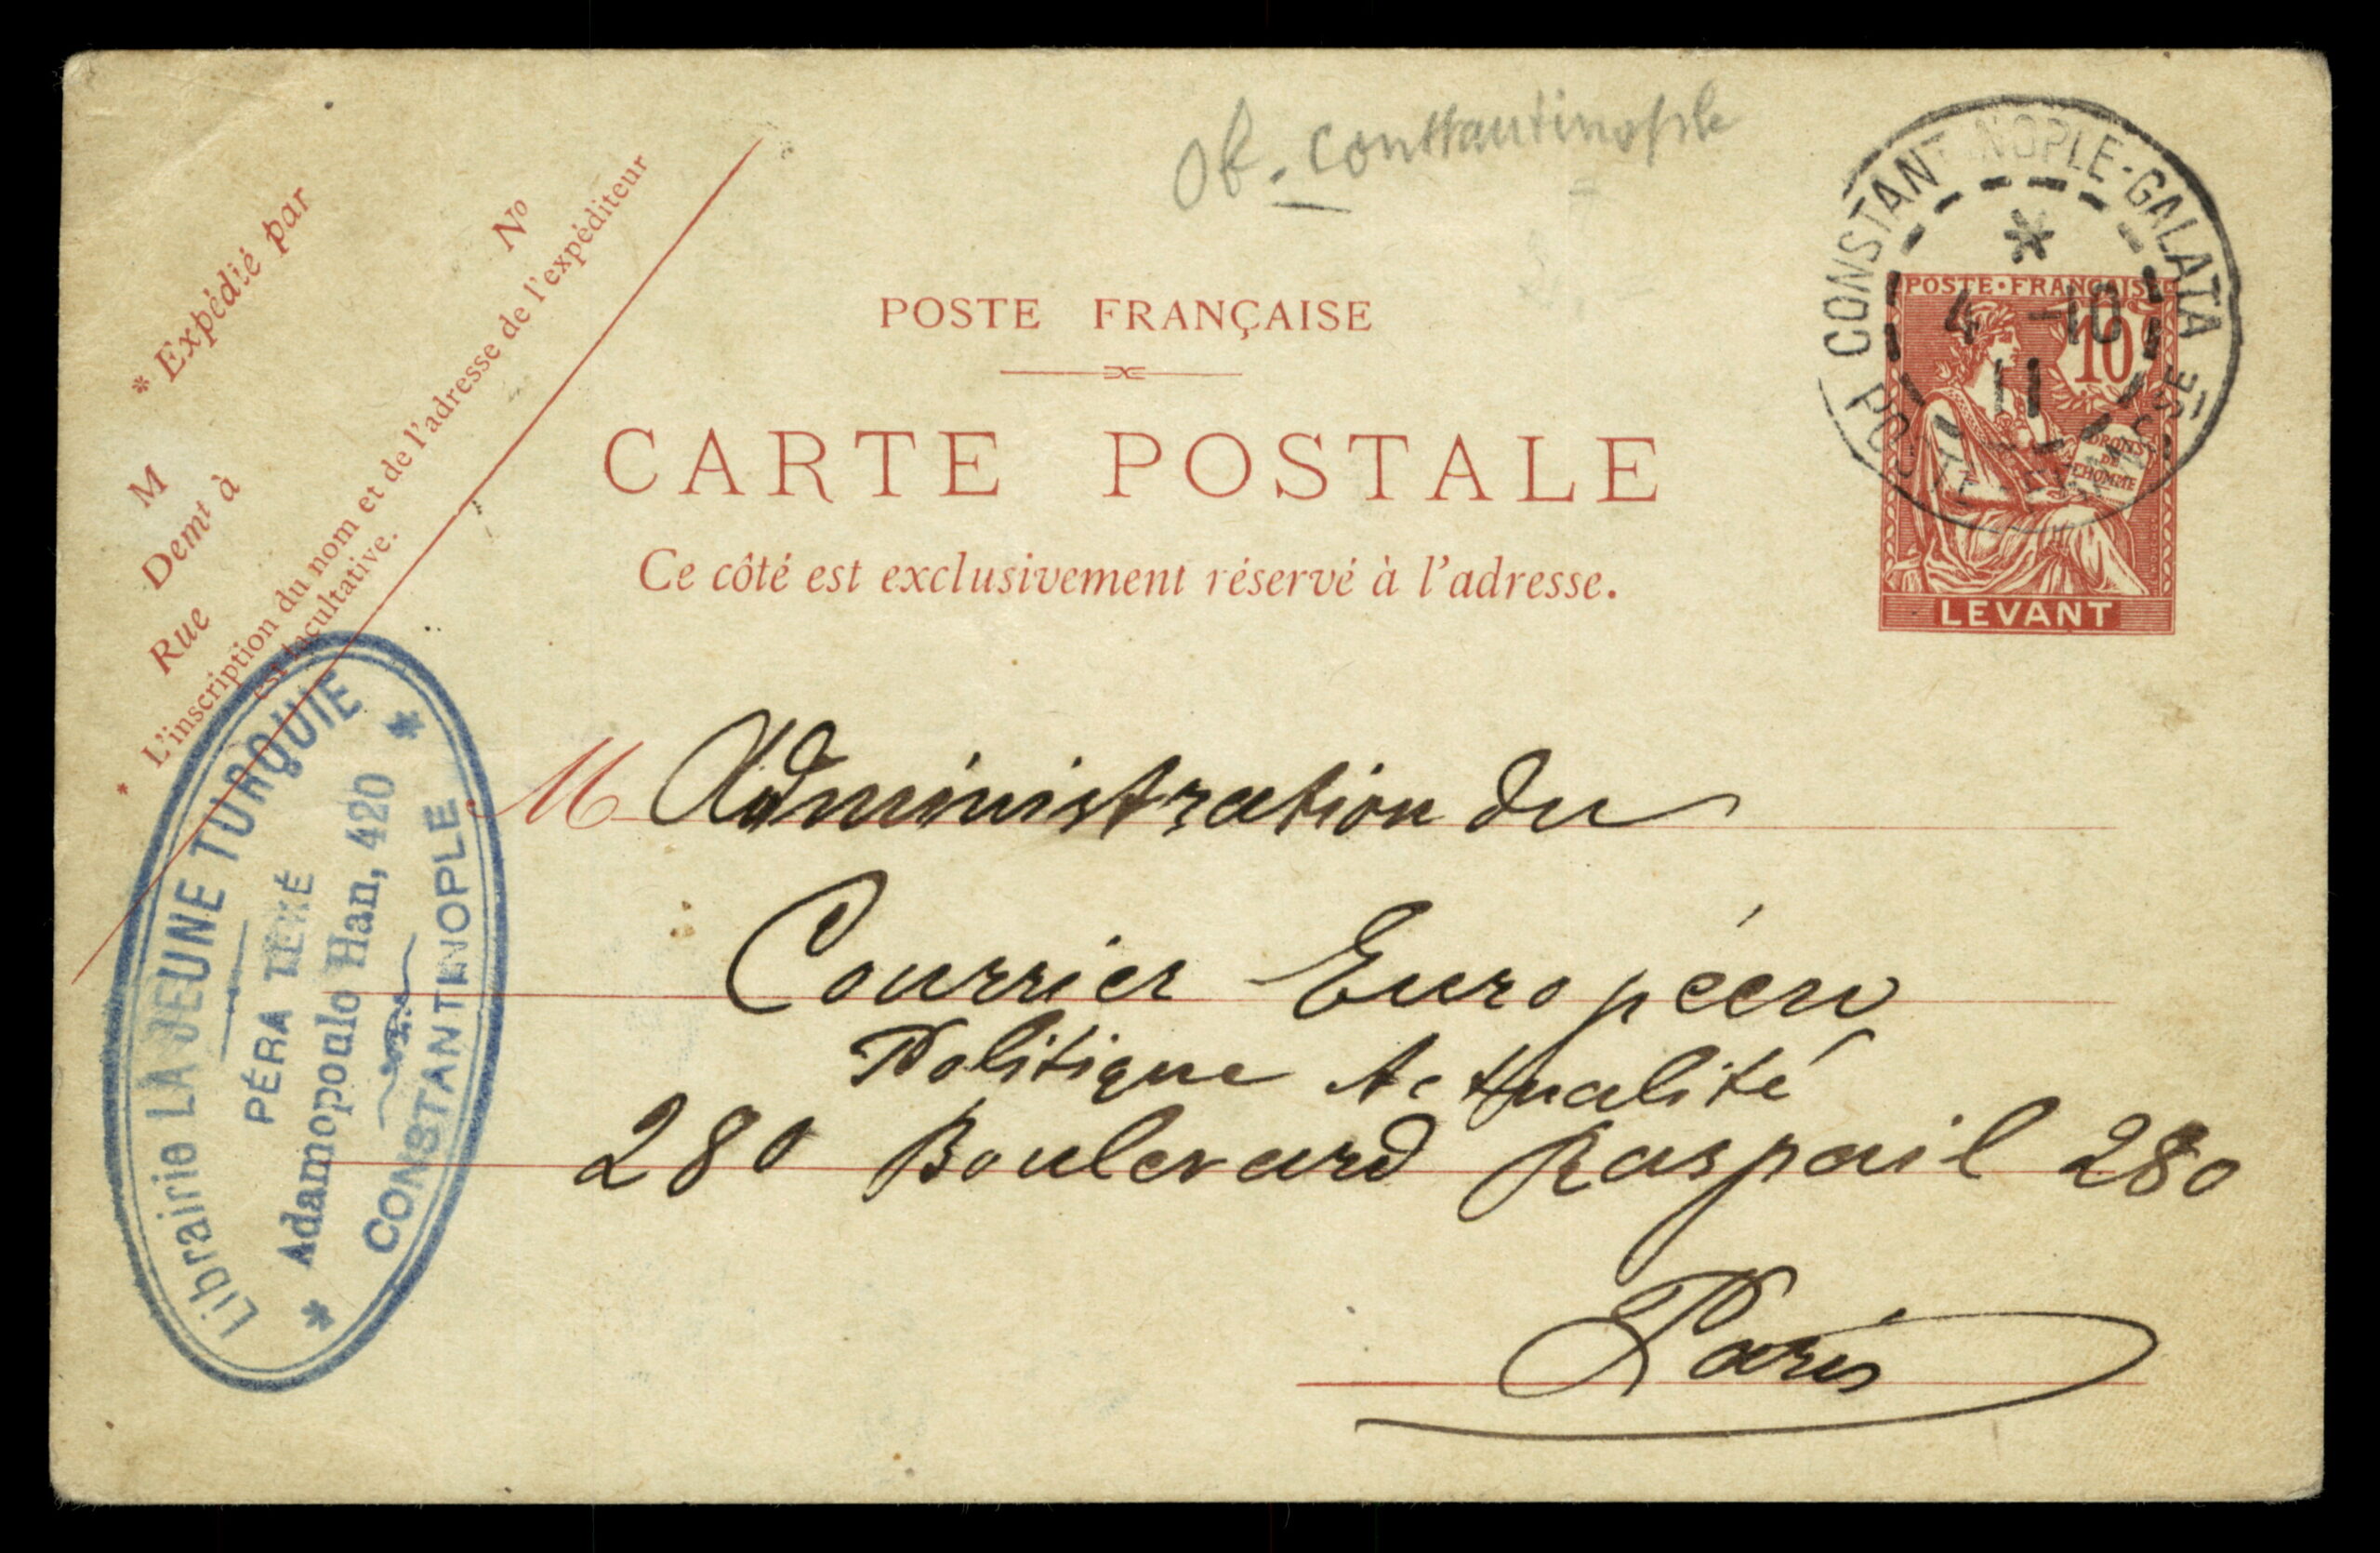 Ob. Constantinople
* Expédié par
No
M
Demt à
Rue
* L'inscription du nom et de l'adresse de l'expéditeur
est facultative.
POSTE FRANÇAISE
CARTE POSTALE
Ce côté est exclusivement réservé à l'adresse.
CONSTANTINOPLE-GALATA
*
4 -10
11
POSTE FRANÇAISE
POSTE•FRANÇAISE
10
DROITS
DE
L'HOMME
LEVANT
M Administration du
Courrier Européen
Politique Actualité
280 Boulevard Raspail 280
Paris
Librairie LA JEUNE TURQUIE
PÉRA TEKÉ
Adamopoulo Han, 420
* CONSTANTINOPLE *